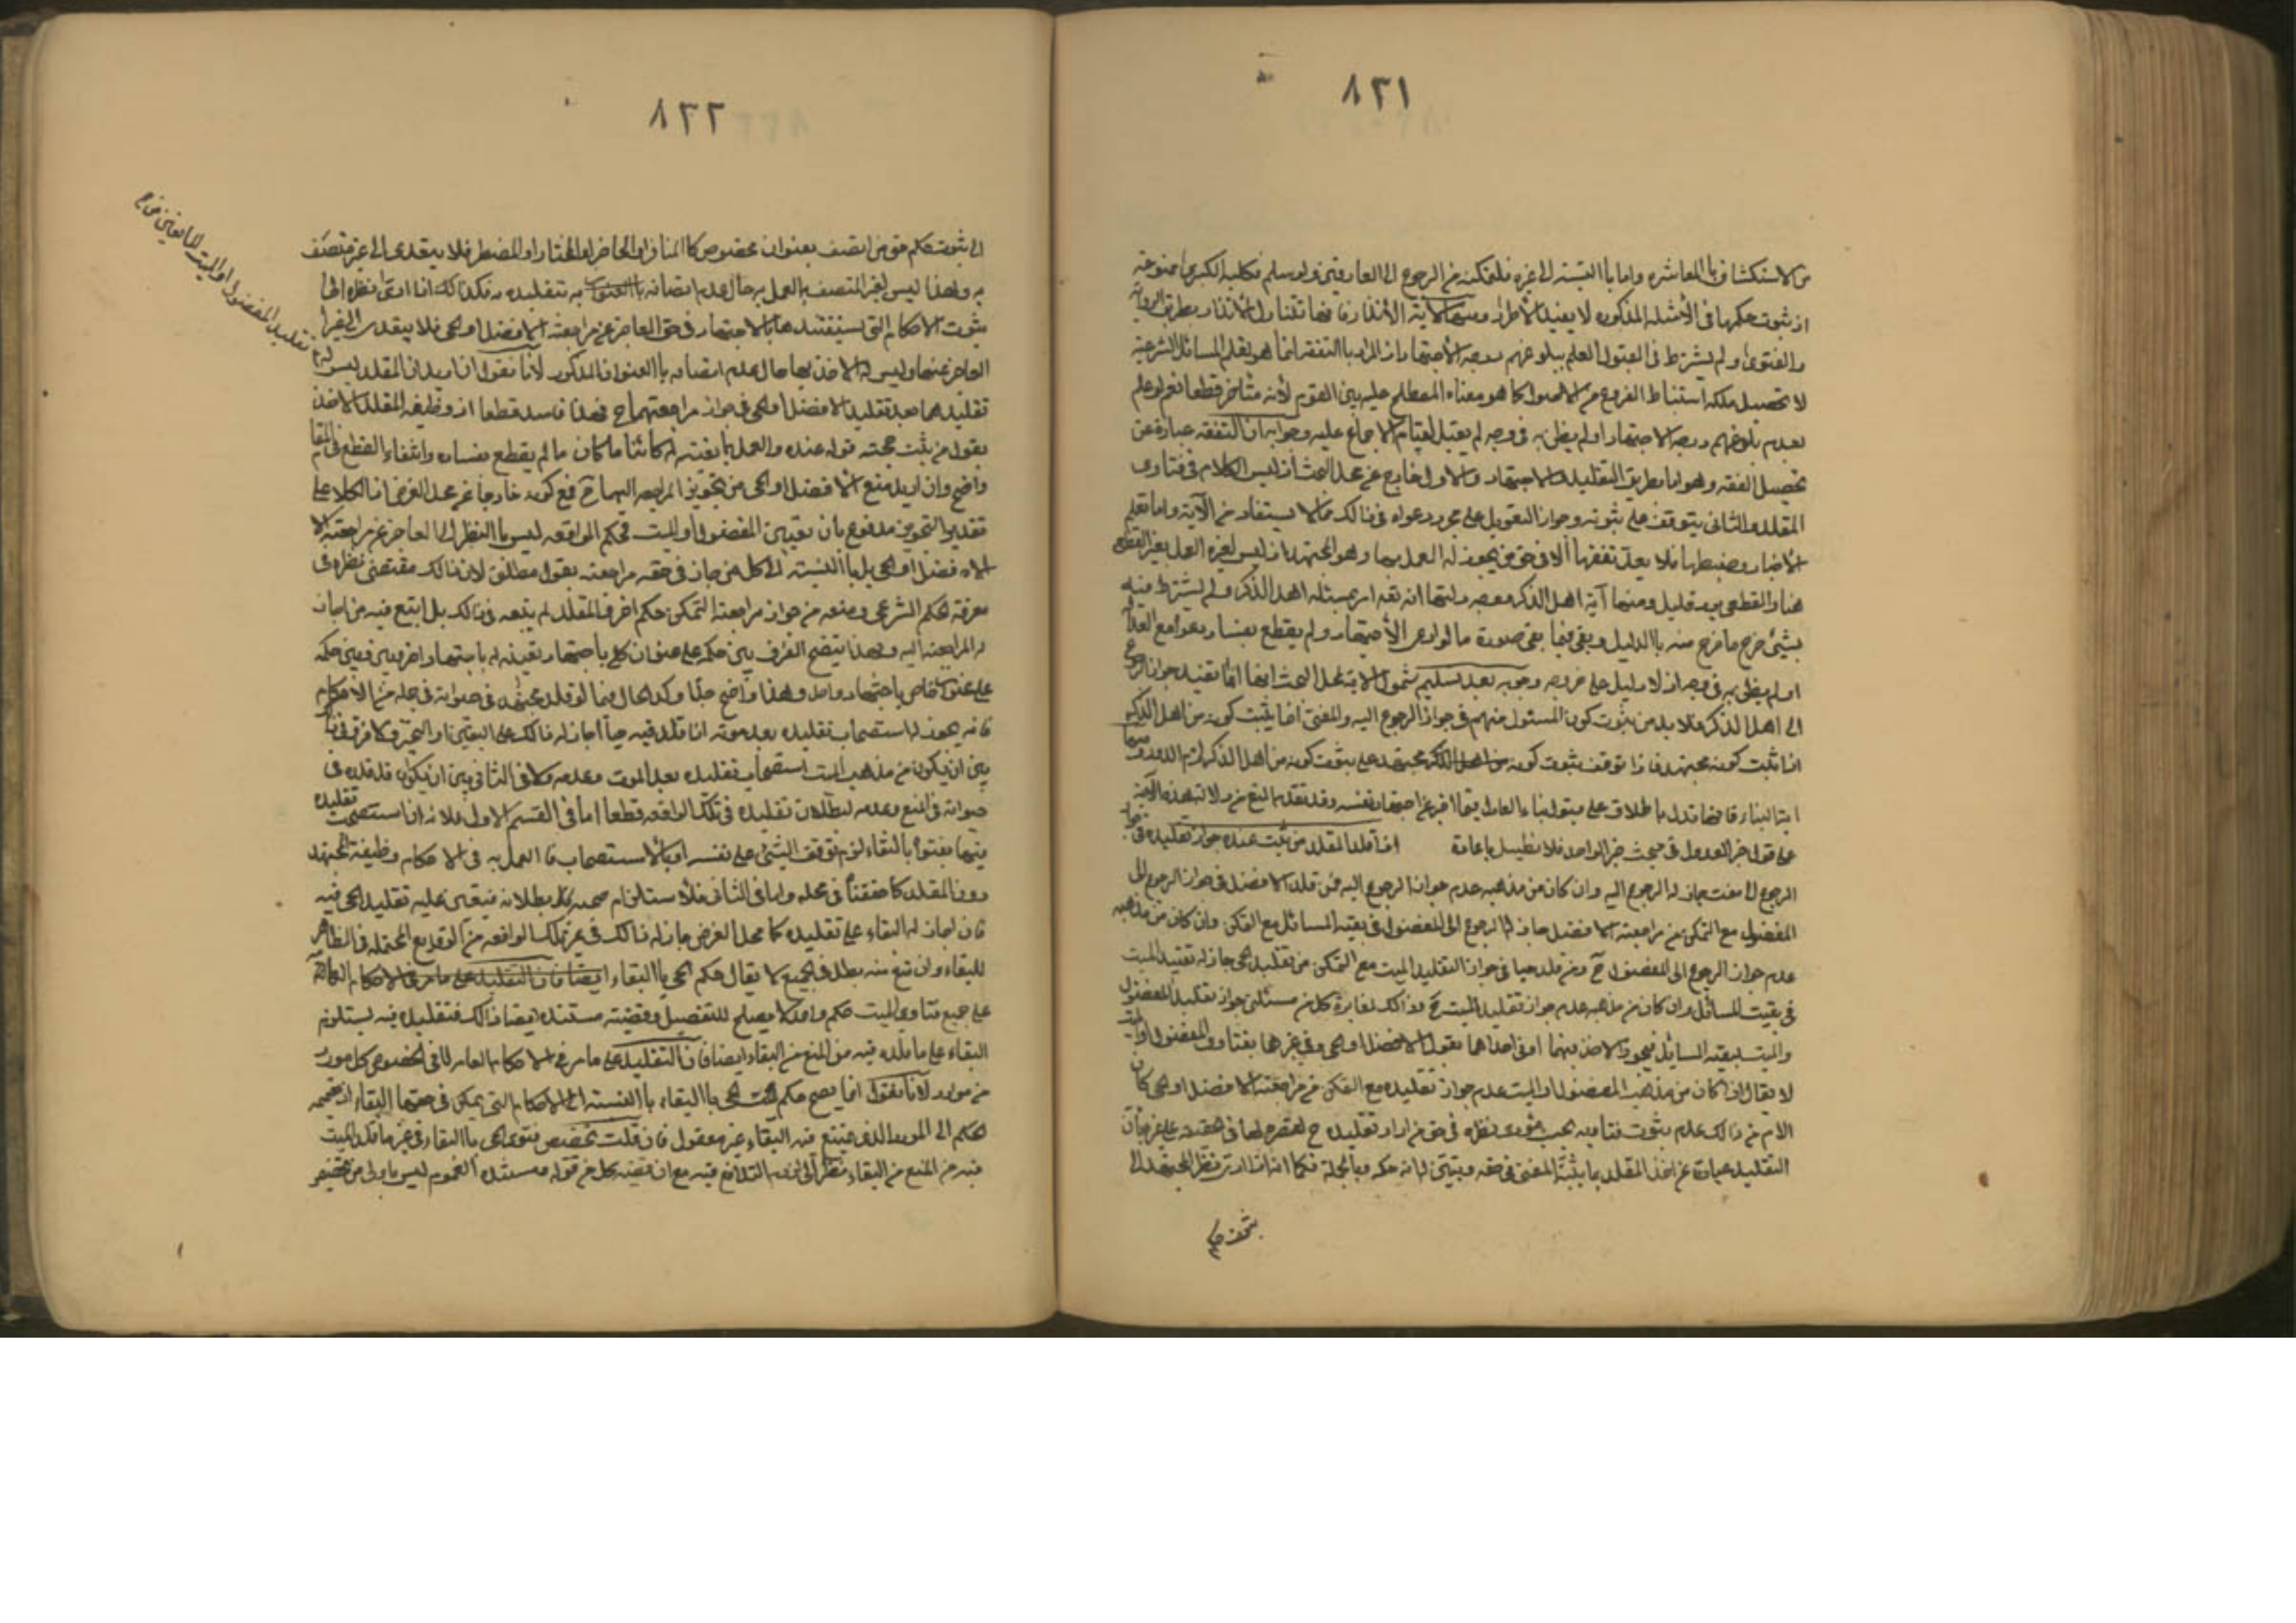 ٨٣١
من الاستكشاف بالمعاشرة واما بالنسبة الى غيره فلتمكنه من الرجوع الى العارفين ولو سلم فكلية الكبرى ممنوعة
اذ ثبوت حكمها في الأمثلة المذكورة لا يفيد الاطراد ومنها آية الانذار فانها تتناول الانذار بطريق الرواية
والفتوى ولم يشترط في القبول العلم ببلوغهم درجة الاجتهاد اذ المراد بالتفقه انما هو تعلم المسائل الشرعية
لا تحصيل ملكة استنباط الفروع من الاصول كما هو معناه المصطلح عليه بين القوم لأنه متأخر قطعا نعم لو علم
بعدم بلوغهم درجة الاجتهاد او لم يظن به في وجه لم يقبل لقيام الاجماع عليه وجوابه ان التفقه عبارة عن
تحصيل الفقه وهو اما بطريق التقليد او الاجتهاد والاول خارج عن محل البحث اذ ليس الكلام في فتاوى
المقلد والثاني يتوقف على ثبوته وجواز التعويل على مجرد دعواه في ذلك مما لا يستفاد من الآية واما تعلم
الأخبار وضبطها فلا يعد تفقها ألا في حق من يجوز له العمل بها وهو المجتهد اذ ليس لغيره العمل بغير القطعي
هنا والقطعي بعد قليل ومنها آية اهل الذكر وجه دلالتها انه تعالى امر بمسئلة اهل الذكر ولم يشترط فيه
بشيئ خرج ما خرج منه بالدليل وبقي فيما بقي صورة ما لو ادعى الأجتهاد ولم يقطع بفساد دعواه مع العدالة
او لم يظن به في وجه اذ لا دليل على خروجه وجوبه بعد تسليم شمول الآية لمحل البحث ايضا انما تفيد جواز الرجوع
الى اهل الذكر فلا بد من ثبوت كون المسئول منهم في جواز الرجوع اليه والمفتي انما يثبت كونه من اهل الذكر
اذا ثبت كونه مجتهدا فاذا توقف ثبوت كونه مجتهدا على ثبوت كونه من اهل الذكر لزم الدور ومنها
اية النباء فانها تدل باطلاقها على قبول نباء العادل فيما اخبر عن اجتهاد نفسه وقد تقدم المنع من دلالة هذه الآية
على قول خبر العدول في مبحث خبر الواحد فلا نطيل باعادة اذا قلد المقلد من ثبت عنده جواز تقليده في جواز
الرجوع الى مفت جاز له الرجوع اليه وان كان من مذهبه عدم جواز الرجوع اليه فمن قلد الافضل في جواز الرجوع الى
المفضول مع التمكن من مراجعة الافضل جاز له الرجوع الى المفضول في بقية المسائل مع التمكن وان كان من مذهبه
عدم جواز الرجوع الى المفضول ح ومن قلد حيا في جواز التقليد الميت مع التمكن من تقليد الحي جاز له تقليد الميت
في بقيت المسائل وان كان من مذهبه عدم جواز تقليد الميت ح وذلك لمغايرة كل من مسئلتي جواز تقليد المفضول
والميت لبقية المسائل فيجوز الاخذ فيهما او في احداهما بقول الافضل او الحي وفي غيرها بفتاوى المفضول او الميت
لا يقال اذا كان من مذهب المفضول او الميت عدم جواز تقليده مع التمكن من مراجعة الافضل او الحي كان
اللازم من ذلك عدم ثبوت فتاويه بحسب مؤدى نظره في حق من اراد تقليده ح لقصره لها في حقيقته على غيره فان
التقليد عبارة عن اخذ المقلد بما يثبته المفتي في حقه ويتبين له انه حكمه وبالجملة فكما انه اذا ادى نظر المجتهد الى
ثبوت حكم
٨٣٢
الى ثبوت حكم في حق من اتصف بعنوان مخصوص كالمسافر او الحاضر او المختار او المضطر فلا يتعدى الى غير متصف
به ولهذا ليس لغير المتصف به العمل به حال عدم اتصافه به بتقليده فكذلك اذا ادى نظره الى
ثبوت الاحكام التي يستفيدها بالاجتهاد في حق العاجز عن مراجعة الافضل او الحي فلا يتعدى الى غير
العاجز عنها وليس له الاخذ بها حال عدم اتصافه بالعنوان المذكور لأنا نقول ان اريد ان المقلد ليس له
تقليد المفضول او الميت المانعين من
تقليدهما بعد تقليد الافضل او الحي في جواز مراجعتهما ح فهذا فاسد قطعا اذ وظيفة المقلد الاخذ
بقول من يثبت حجية قوله عنده والعمل بما يفتيه له كائنا ما كان ما لم يقطع بفساده وانتفاء القطع في المقام
واضح وان اريد منع الافضل او الحي من تجويز المراجعة اليهما ح فمع كونه خارجا عن محل الفرض اذ الكلام على
تقدير التجويز مدفوع بان تعيين المفضول او الميت لحكم الواقعة ليس بالنظر الى العاجز عن مراجعة الا
لافضل او الحي بل بالنسبة الى كل من جاز في حقه مراجعته بقول مطلق لان ذلك مقتضى نظره في
معرفة الحكم الشرعي ومنعه من جواز مراجعة المتمكن حكم اخر فالمقلد لم يتبعه في ذلك بل اتبع فيه من اجاز
له المراجعة اليه وبهذا يتضح الفرق بين حكمه على عنوان كلي باجتهاد تقيده له باجتهاد اخر وبين حكمه
على عنوان خاص باجتهاد واحد وهذا واضح جدا وكذا الحال فيما لو قلد مجتهدا في حيوته في جملة من الاحكام
فانه يجوز له استصحاب تقليده بعد موته اذا قلد فيه حيا اجاز له ذلك على اليقين او التخير ولا فرق في ذلك
بين ان يكون من مذهب الميت استصحاب تقليده بعد الموت وعدمه ولا في الثاني بين ان يكون قد قلده في
حيوته في المنع وعدمه لبطلان تقليده في تلك الواقعة قطعا اما في القسم الاول فلانه ان استصحب تقليده
فيها بفتواه بالبقاء لزم توقف الشيئ على نفسه او بالأستصحاب فالعمل به في الاحكام وظيفة المجتهد
دون المقلد كما حققنا في محله واما في الثاني فلاستلزام صحته بطلانه فيتعين عليه تقليد الحي فيه
فان اجاز له البقاء على تقليده كما هو محل الفرض جاز له ذلك في غير تلك الواقعة من الوقايع المحتملة في الظاهر
للبقاء وان منع منه بطل في الجميع لا يقال حكم الحي بالبقاء
على جميع فتاوي الميت حكم واحد لا يصلح للتفصيل وقضيته مستنده ايضا ذلك فتقليده فيه يستلزم
البقاء على ما قلده فيه من المنع من البقاء ايضا فان التقليد على ما مر في الاحكام العامة لا في الخصوص كل مورد
من موارد لأنا نقول انما يصح حكم الحي بالبقاء بالنسبة الى الاحكام التي يمكن في حقها البقاء اذ تعميم
الحكم الى المورد الذي يمتنع فيه البقاء غير معقول فان قلت تخصيص فتوى الحي بالبقاء في غير ما قلد الميت
فيه من المنع من البقاء نظرا الى لزوم التدافع فيه مع ان قضية كل من قوله ومستنده العموم ليس باولى من تخصيص